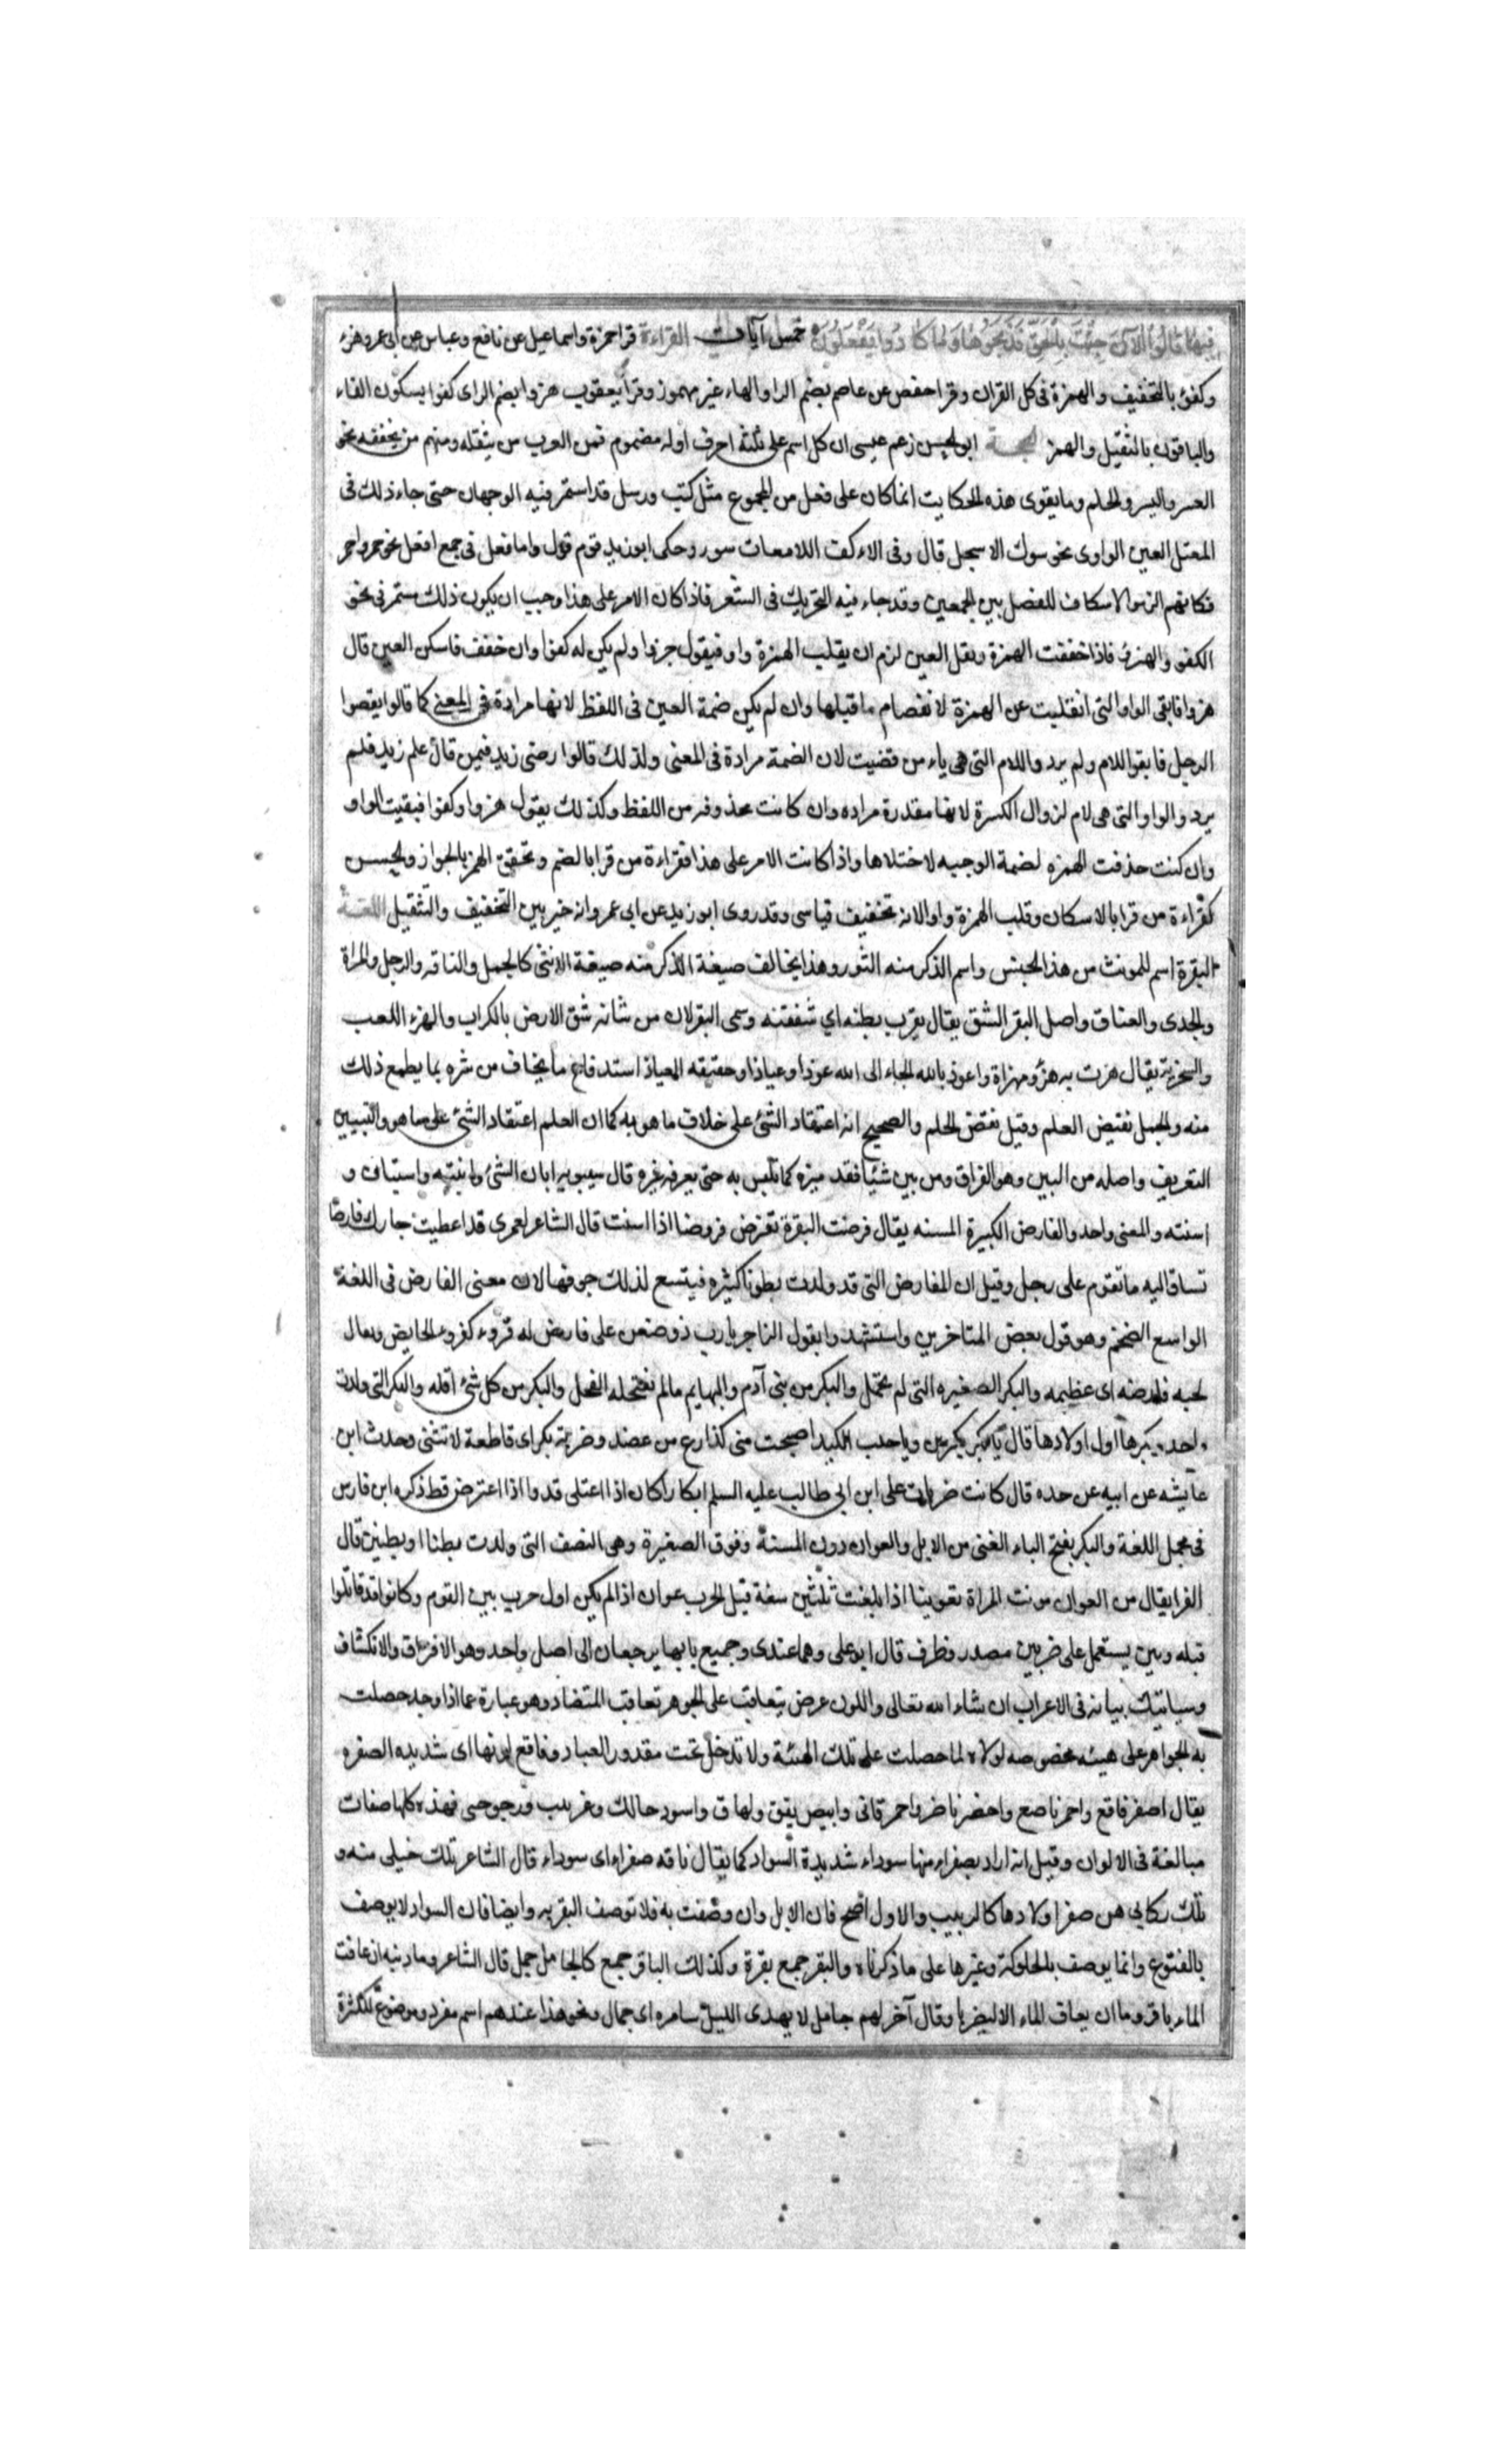 فيها قالوا الآن جئت بالحق فذبحوها وما كادوا يفعلون خمس آيات القراءة قرا حمزة واسماعيل عن نافع وعباس عن ابى عمرو هزء
وكفئ بالتخفيف والهمزة فى كل القران وقرا حفص عن عاصم بضم الرا والهاء غير مهموز وقرا يعقوب هزوا بضم الراى كفوا بسكون الفاء
والباقون بالتثقيل والهمز الحجة ابو الحسن زعم عيسى ان كل اسم على ثلثة احرف اوله مضموم فمن العرب من يثقله ومنهم من يخففه نحو
العسر واليسر والحلم ومايقوى هذه الحكايت انما كان على فعل من الجموع مثل كتب ورسل قد استمر فيه الوجهان حتى جاء ذلك فى
المعتل العين الواوى نحو سوك الاسجل قال وفى الاكف اللامعات سور وحكى ابو زيد قوم قول واما فعل فى جمع افعل نحو حمر واحمر
فكانهم الزموا الاسكان للفصل بين الجمعين وقد جاء فيه التحريك فى الشعر فاذا كان الامر على هذا وجب ان يكون ذلك مستمر فى نحو
الكفو والهزئ فاذا خففت الهمزة وثقل العين لزم ان يقلب الهمزة واو فيقول جزوا ولم يكن له كفوا وان خفف فاسكن العين قال
هزوا فابقى الواو التى انقلبت عن الهمزة لانفصام ما قبلها وان لم يكن ضمة العين فى اللفظ لانها مرادة فى المعنى كما قالوا يقصوا
الرجل فابقوا اللام ولم يردوا اللام التى هى ياء من قضيت لان الضمة مرادة فى المعنى ولذلك قالوا رضى زيد فيمن قال علم زيد فلم
يردوا الواو التى هى لام لزوال الكسرة لانها مقدرة مراده وان كانت محذوفه من اللفظ وكذلك يقول هزوا وكفوا فبقيت الواو
وان كنت حذفت الهمزه لضمة الوجبه لاختلاها واذا كانت الامر على هذا فقراءة من قرا بالضم وتحقيق الهمز بالجواز ولحسن
كقراءة من قرا بالاسكان وقلب الهمزة واوا لانه تخفيف قياسى وقد روى ابو زيد عن ابى عمرو انه خير بين التخفيف والتثقيل اللغة
البقرة اسم للمونث من هذا الجنس واسم الذكر منه الثور وهذا يخالف صيغة الذكر منه صيغة الانثى كالجمل والناقه والرجل والمراة
والجدى والعناق واصل البقر الشق يقال بقرت بطنه اي شققته وسمى البقر لان من شانه شق الارض بالكراب والهزء اللعب
والسخرية يقال هزت به هزؤ ومهزاة واعوذ بالله الجاء الى الله عوذا وعياذا وحقيقه العياذ استدفاع ما يخاف من شره بما يطمع ذلك
منه والجهل نقيض العلم وقيل نقض الحلم والصحيح انه اعتقاد الشئ على خلاف ما هو به كما ان العلم اعتقاد الشئ على ما هو والتبيين
التعريف واصله من البين وهو الفراق ومن بين شيئا فقد ميزه كما يلبس به حتى يعرفه غيره قال سيبويه ابان الشئ وابنته واستبان و
استنته والمعنى واحد والفارض الكبيرة المسنه يقال فرضت البقرة تفرض فروضا اذا اسنت قال الشاعر لعمرى قد اعطيت جارك فارضا
تساق اليه ما تقوم على رجل وقيل ان المفارض التى قد ولدت بطونا كثيره فيتسع لذلك جوفها لان معنى الفارض فى اللغة
الواسع الضخم وهو قول بعض المتاخرين واستشهدوا بقول الزاجر يا رب ذو ضغن على فارض له قروء كقروء الحايض ويعال
لحيه فارضه اى عظيمه والبكر الصغيره التى لم تحمل والبكر من بنى آدم والبهايم مالم يفتحله الفحل والبكر من كل شئ اوله والبكر التى ولدت
واحد وبكرها اول اولادها قال يا بكر بكرين وياحلب الكبد اصبحت منى كذارع من عضد وضربة بكر اى قاطعة لا تثنى وحدث ابن
عايشه عن ابيه عن جده قال كانت ضربات على ابن ابى طالب عليه السلم ابكارا كان اذا اعتلى قد واذا اعترض قط ذكره ابن فارس
فى مجمل اللغة والبكر بفتح الباء الفتى من الابل والعوان دون المسنة وفوق الصغيرة وهى النصف التى ولدت بطنا او بطنين قال
الفرا يقال من العوان عونت المراة تعوينا اذا بلغت ثلثين سنة قيل الحرب عوان اذا لم يكن اول حرب بين القوم وكانوا قد قاتلوا
قبله وبين يستعمل على ضربين مصدر وظرف قال ابو على وهما عندى وجميع بابهما يرجعان الى اصل واحد وهو الافراق والانكشاف
وسياتيك بيانه فى الاعراب ان شاء الله تعالى واللون عرض يتعاقب على الجوهر تعاقب المتضاد وهو عبارة عما اذا وجد حصلت
به الجواهر على هيئه مخصوصه لولاه لما حصلت على تلك الهيئة ولا تدخل تحت مقدور العباد وفاقع لونها اى شديده الصفره
يقال اصفر فاقع واحمر ناصع واخضر ناضر واحمر قانى وابيض يقق ولهاق واسود حالك وغربيب ودجوجى فهذه كلها صفات
مبالغة فى الالوان وقيل انه اراد بصفراء منها سوداء شديدة السواد كما يقال ناقه صفراء اى سوداء قال الشاعر تلك خيلى منه و
تلك ركابى هن صفر اولادها كالربيب والاول اصح فان الابل وان وصفت به فلا توصف البقر به وايضا فان السواد لا يوصف
بالفقوع وانما يوصف بالحلوكة وغيرها على ما ذكرناه والبقر جمع بقرة وكذلك الباقر جمع كالجامل جمل قال الشاعر وما ذنبه ان عافت
الماء باقر وما ان يعاف الماء الا ليضربا وقال آخر لهم جامل لا يهدى الليل سامره اى جمال ونحو هذا عندهم اسم مفرد وموضوع للكثرة